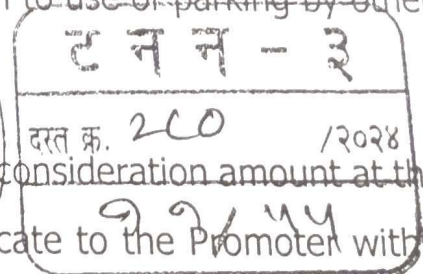 n to use of parking by othe
ट न न - ३
दस्त क्र. २८० /२०२४
consideration amount at th
cate to the Promoter with